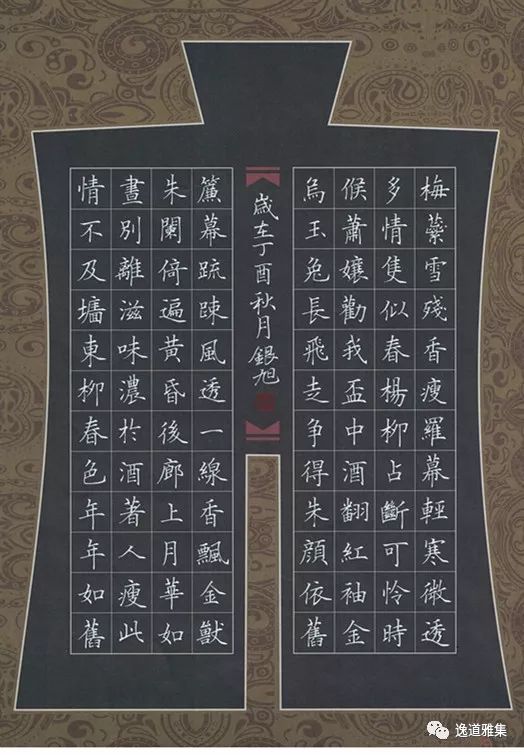 梅蘂雪殘香瘦羅幕輕寒微透
多情隻似春楊柳占斷可怜時
候蕭孃勸我盃中酒翻紅袖金
烏玉兔長飛走争得朱顏依舊
歲在丁酉秋月銀旭
簾幕疏踈風透一線香飄金獸
朱闌倚遍黄昏後廊上月華如
晝別離滋味濃於酒著人瘦此
情不及墻東柳春色年年如舊
逸道雅集